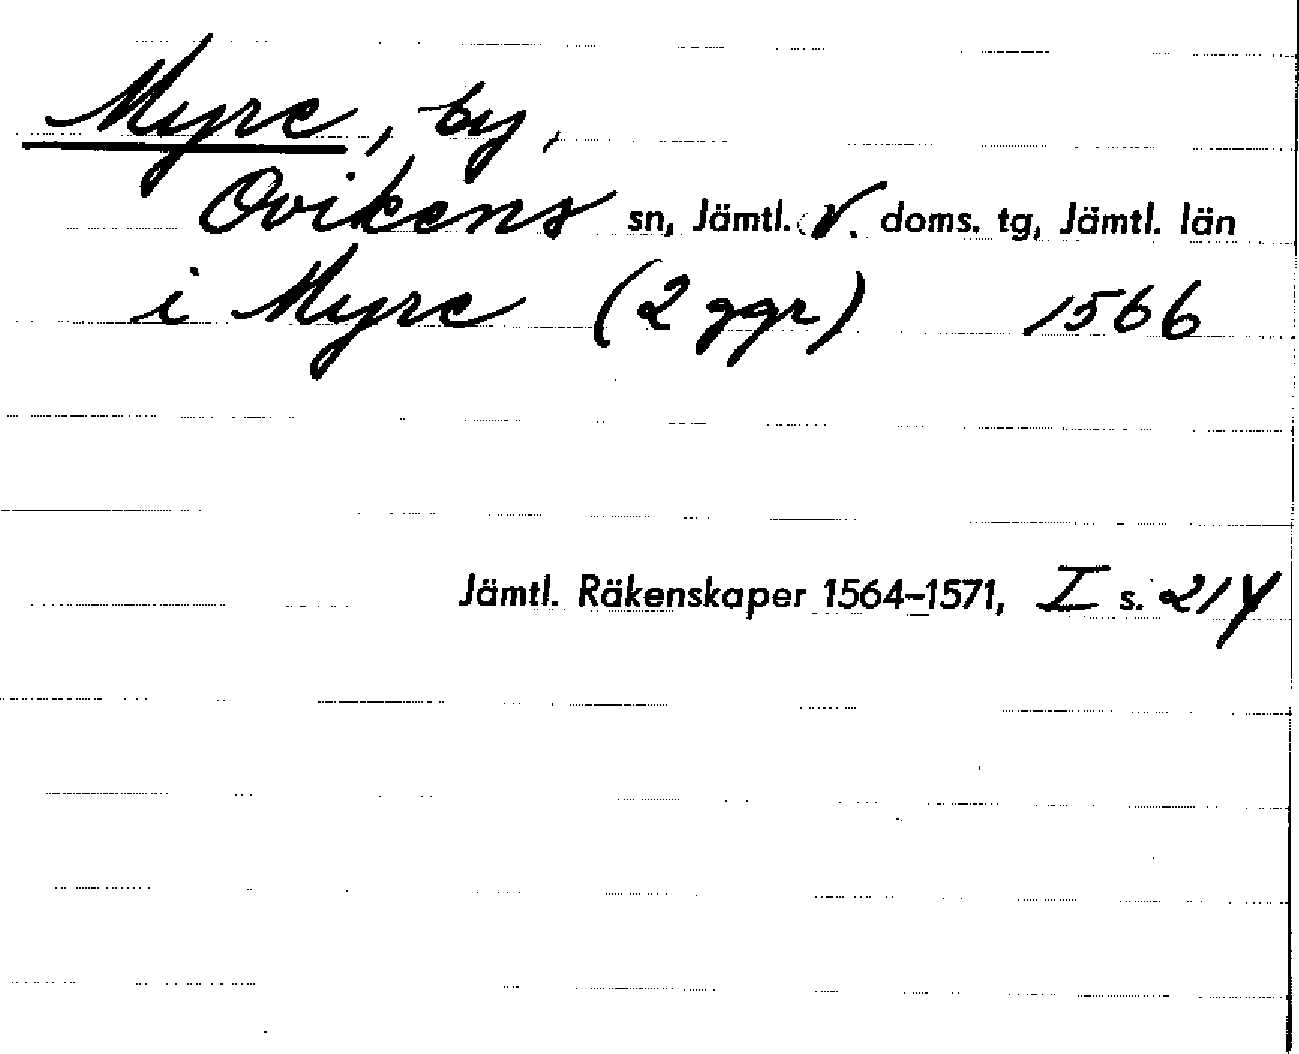 Myre, by,
Ovikens sn, Jämtl. V. doms. tg, Jämtl. län
i Myre (2 ggr) 1566
Jämtl. Räkenskaper 1564–1571, I s. 214